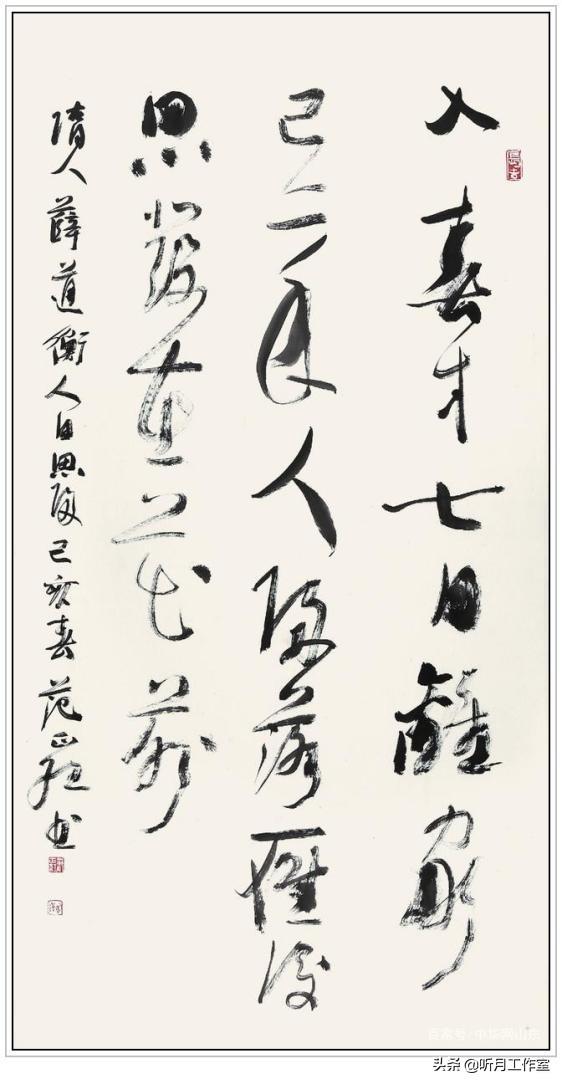 入春才七日離家
已二年人歸落雁後
思發在花前
隋人薛道衡人日思歸己亥春范正紅書
百家号·中华网山东
头条 @听月工作室